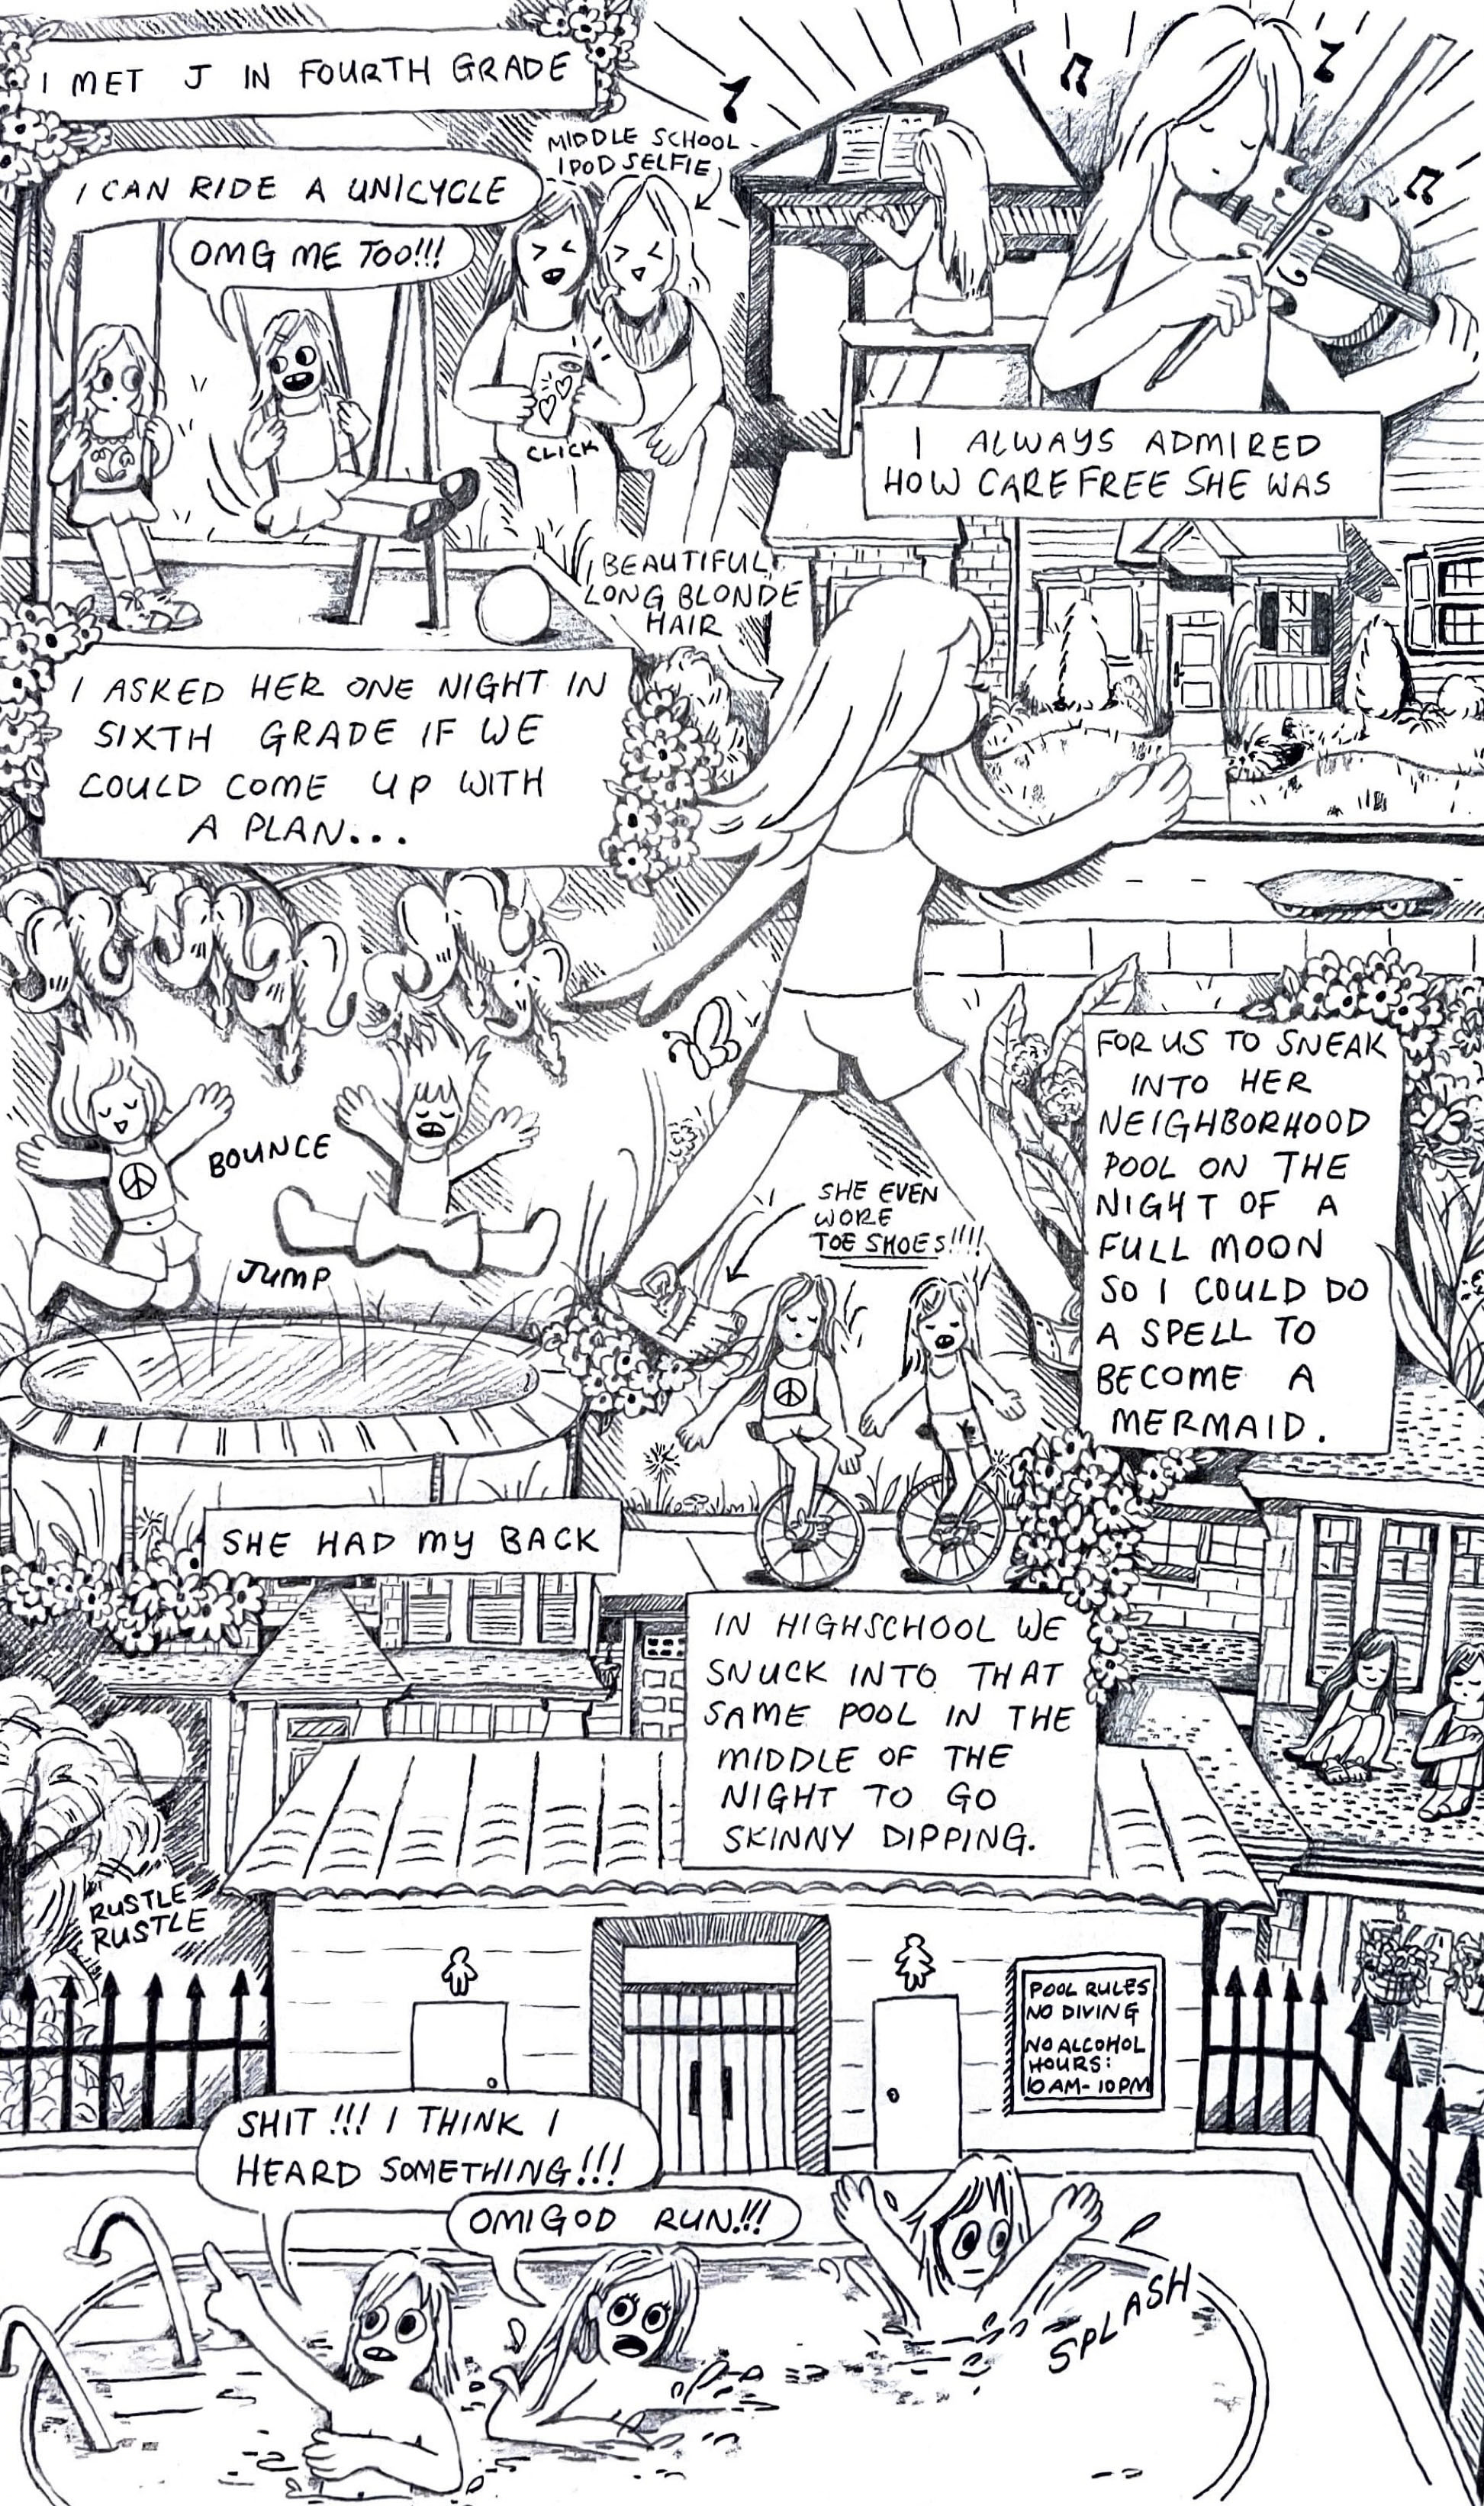 I MET J IN FOURTH GRADE
I CAN RIDE A UNICYCLE
OMG ME TOO!!!
MIDDLE SCHOOL
IPOD SELFIE
CLICK
I ALWAYS ADMIRED
HOW CAREFREE SHE WAS
BEAUTIFUL
LONG BLONDE
HAIR
I ASKED HER ONE NIGHT IN
SIXTH GRADE IF WE
COULD COME UP WITH
A PLAN...
FOR US TO SNEAK
INTO HER
NEIGHBORHOOD
POOL ON THE
NIGHT OF A
FULL MOON
SO I COULD DO
A SPELL TO
BECOME A
MERMAID.
BOUNCE
JUMP
SHE EVEN
WORE
TOE SHOES!!!!
SHE HAD MY BACK
IN HIGHSCHOOL WE
SNUCK INTO THAT
SAME POOL IN THE
MIDDLE OF THE
NIGHT TO GO
SKINNY DIPPING.
RUSTLE
RUSTLE
POOL RULES
NO DIVING
NO ALCOHOL
HOURS:
10 AM-10PM
SHIT!!! I THINK I
HEARD SOMETHING!!!
OMIGOD RUN!!!
SPLASH